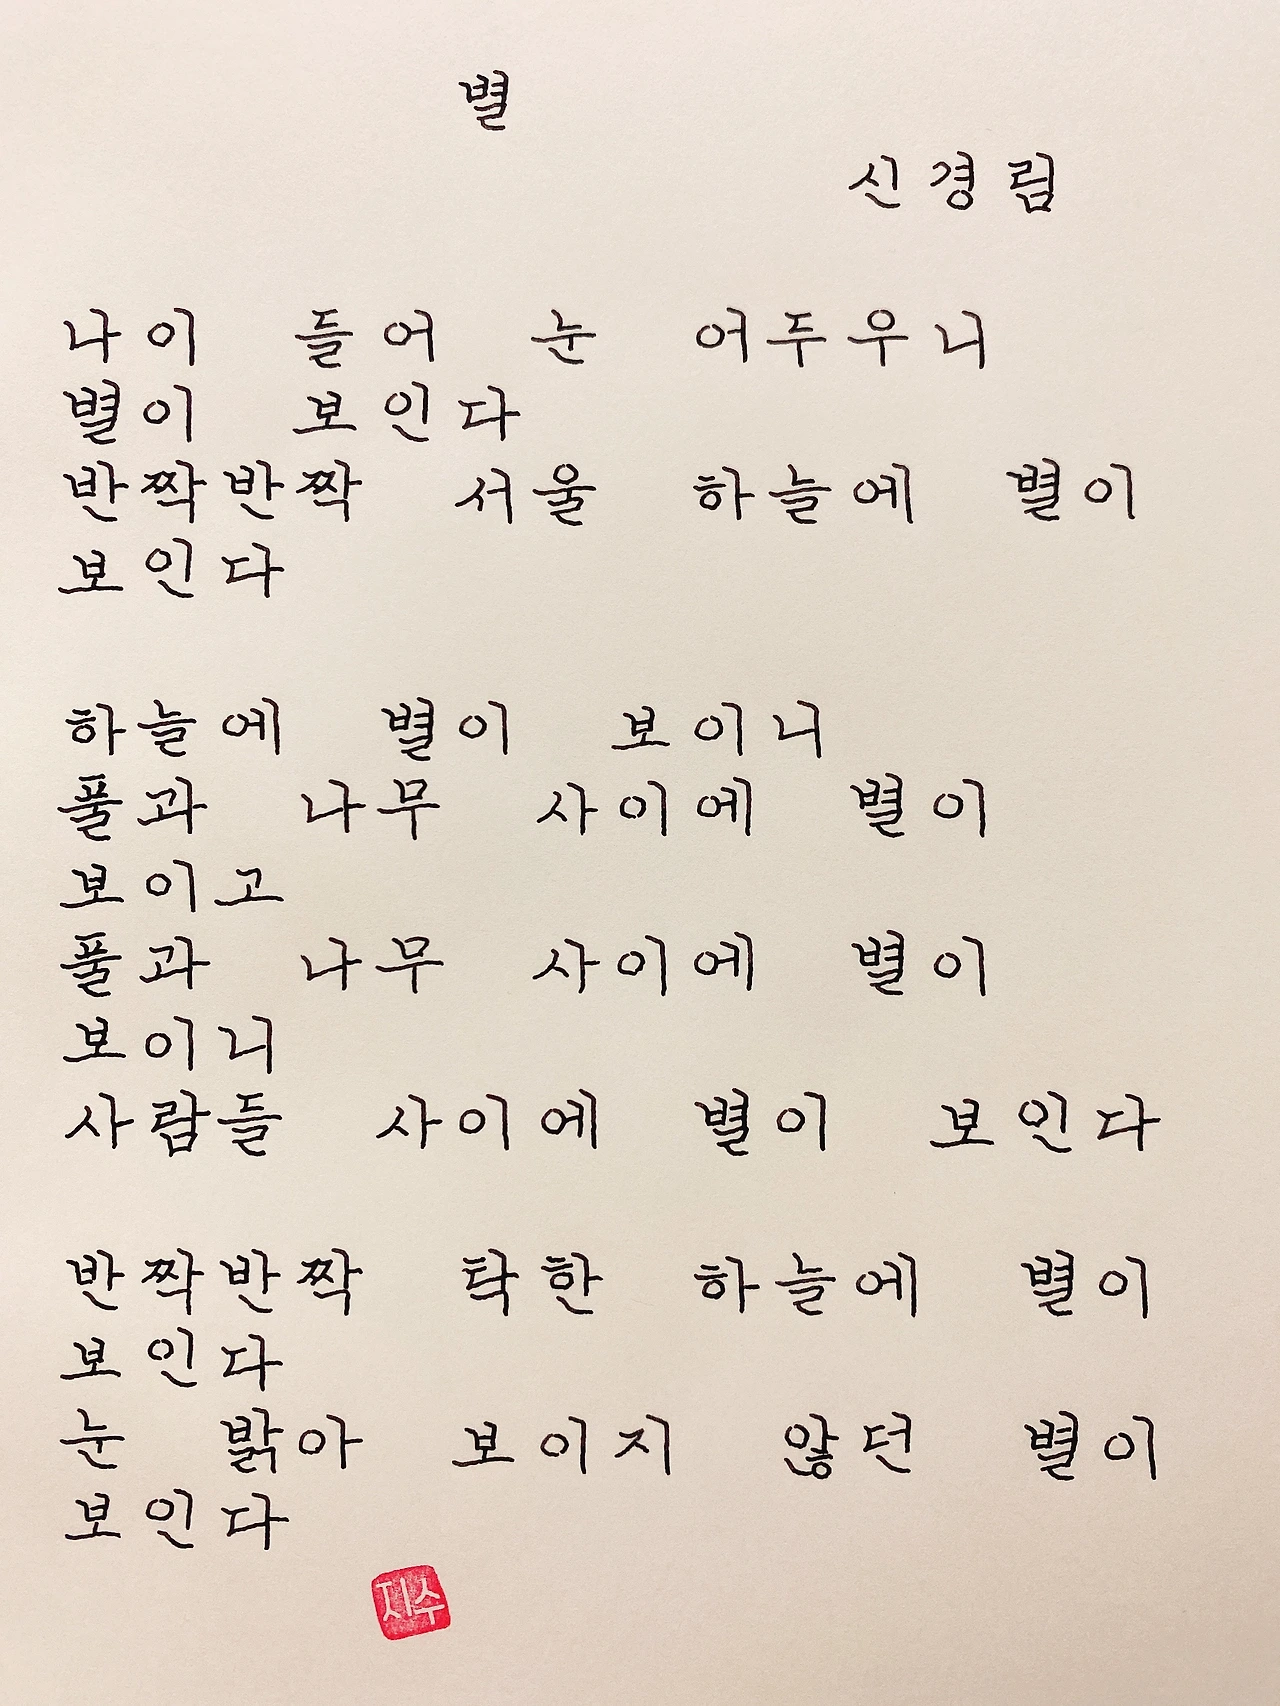 별
신경림
나이 들어 눈 어두우니
별이 보인다
반짝반짝 서울 하늘에 별이
보인다
하늘에 별이 보이니
풀과 나무 사이에 별이
보이고
풀과 나무 사이에 별이
보이니
사람들 사이에 별이 보인다
반짝반짝 탁한 하늘에 별이
보인다
눈 밝아 보이지 않던 별이
보인다
지수